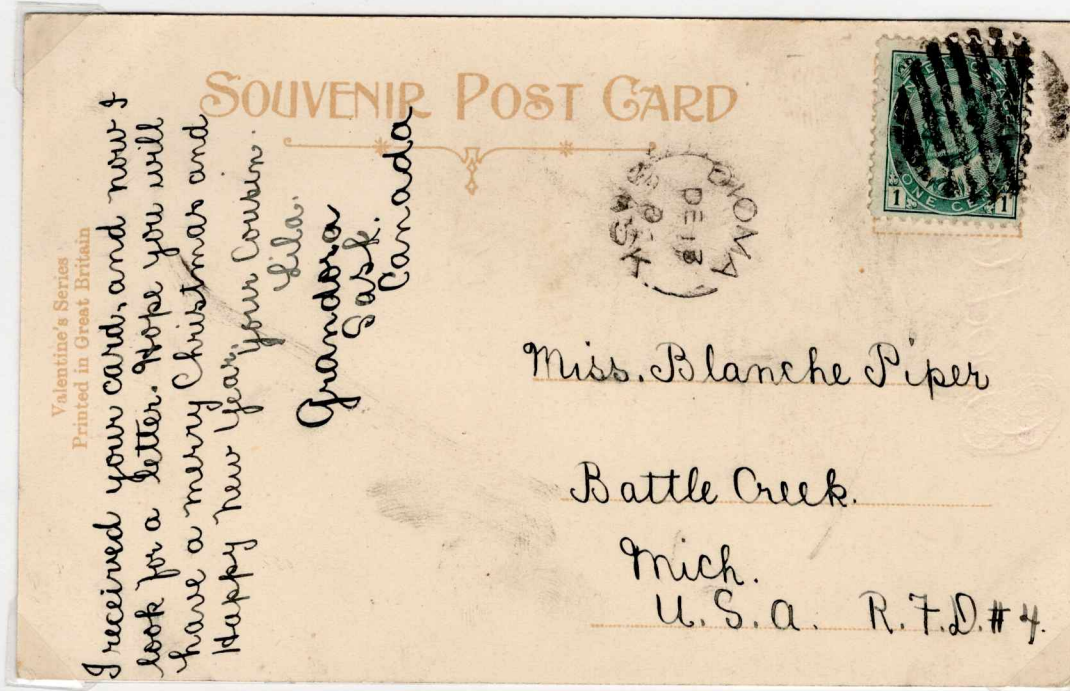 SOUVENIR POST CARD
Valentine's Series
Printed in Great Britain
I received your card, and now I
look for a letter. Hope you will
have a merry Christmas and
Happy New Year, your Cousin
Lila.
Grandora
Sask.
Canada
DE 13
SASK
ONE CENT
1 1
Miss. Blanche Piper
Battle Creek.
Mich.
U.S.A. R.F.D. # 4.